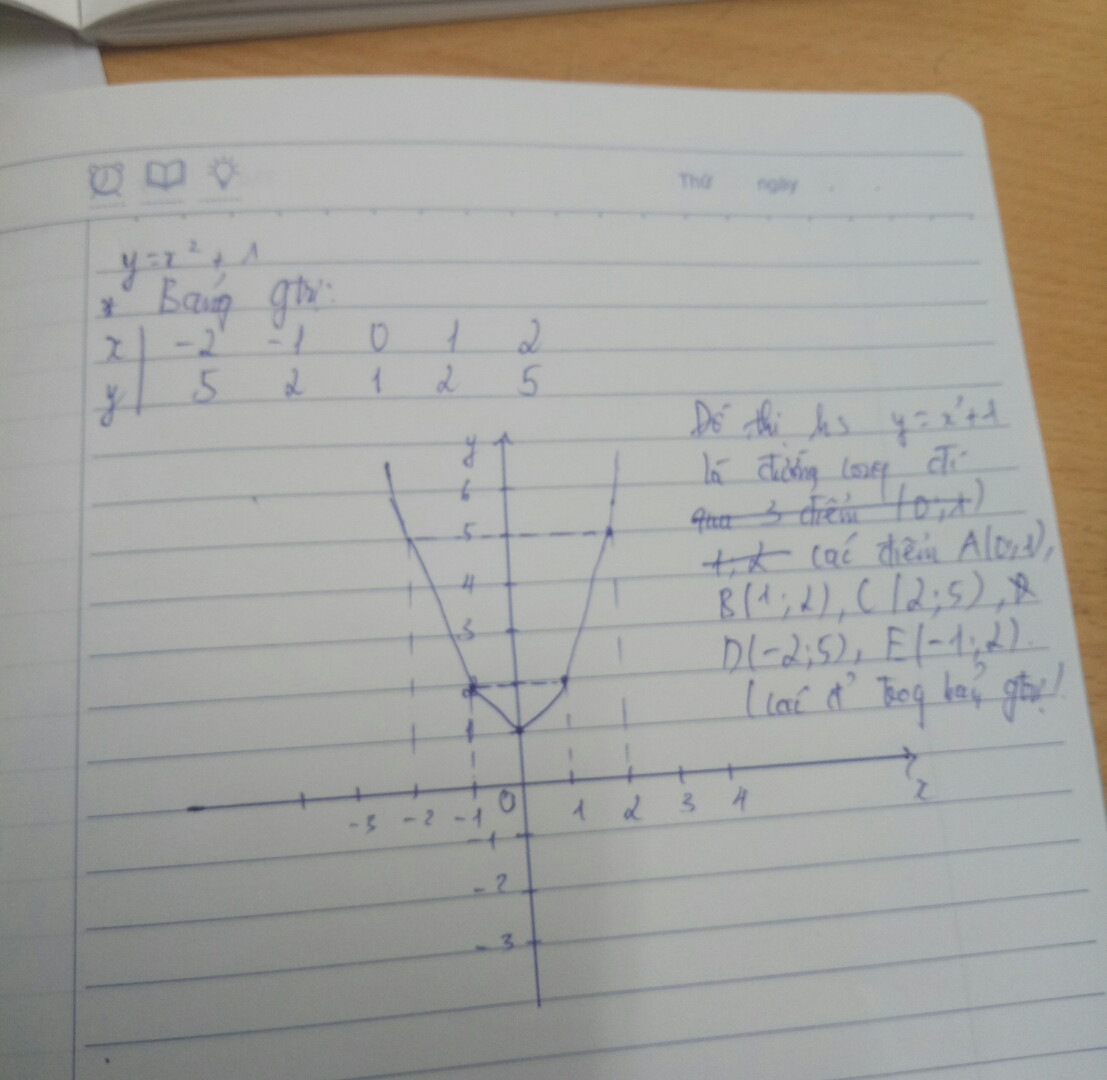 Thứ ngày . .
y = x² + 1
* Bảng gtrị:
x | -2 -1 0 1 2
y | 5 2 1 2 5
Đồ thị hs y = x²+1
là đường cong đi
qua 3 điểm (0;1)
các điểm A(0;1),
B(1;2), C(2;5),
D(-2;5), E(-1;2).
(các đ' trog bảg gtrị)
y
6
5
4
3
2
1
-3 -2 -1 O 1 2 3 4 x
-1
-2
-3